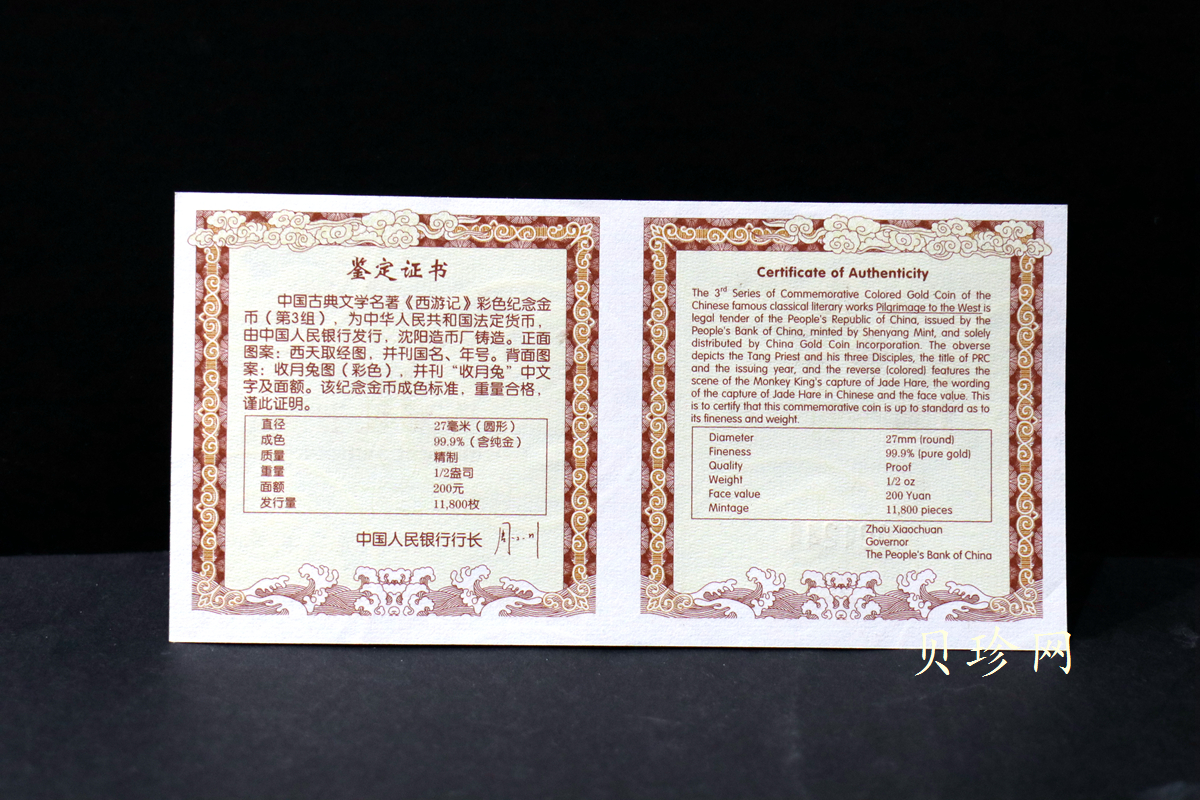 鉴定证书
中国古典文学名著《西游记》彩色纪念金
币（第3组），为中华人民共和国法定货币，
由中国人民银行发行，沈阳造币厂铸造。正面
图案：西天取经图，并刊国名、年号。背面图
案：收月兔图（彩色），并刊“收月兔”中文
字及面额。该纪念金币成色标准，重量合格，
谨此证明。
直径 27毫米（圆形）
成色 99.9%（含纯金）
质量 精制
重量 1/2盎司
面额 200元
发行量 11,800枚
中国人民银行行长
Certificate of Authenticity
The 3rd Series of Commemorative Colored Gold Coin of the
Chinese famous classical literary works Pilgrimage to the West is
legal tender of the People's Republic of China, issued by the
People's Bank of China, minted by Shenyang Mint, and solely
distributed by China Gold Coin Incorporation. The obverse
depicts the Tang Priest and his three Disciples, the title of PRC
and the issuing year, and the reverse (colored) features the
scene of the Monkey King's capture of Jade Hare, the wording
of the capture of Jade Hare in Chinese and the face value. This
is to certify that this commemorative coin is up to standard as to
its fineness and weight.
Diameter 27mm (round)
Fineness 99.9% (pure gold)
Quality Proof
Weight 1/2 oz
Face value 200 Yuan
Mintage 11,800 pieces
Zhou Xiaochuan
Governor
The People's Bank of China
贝珍网